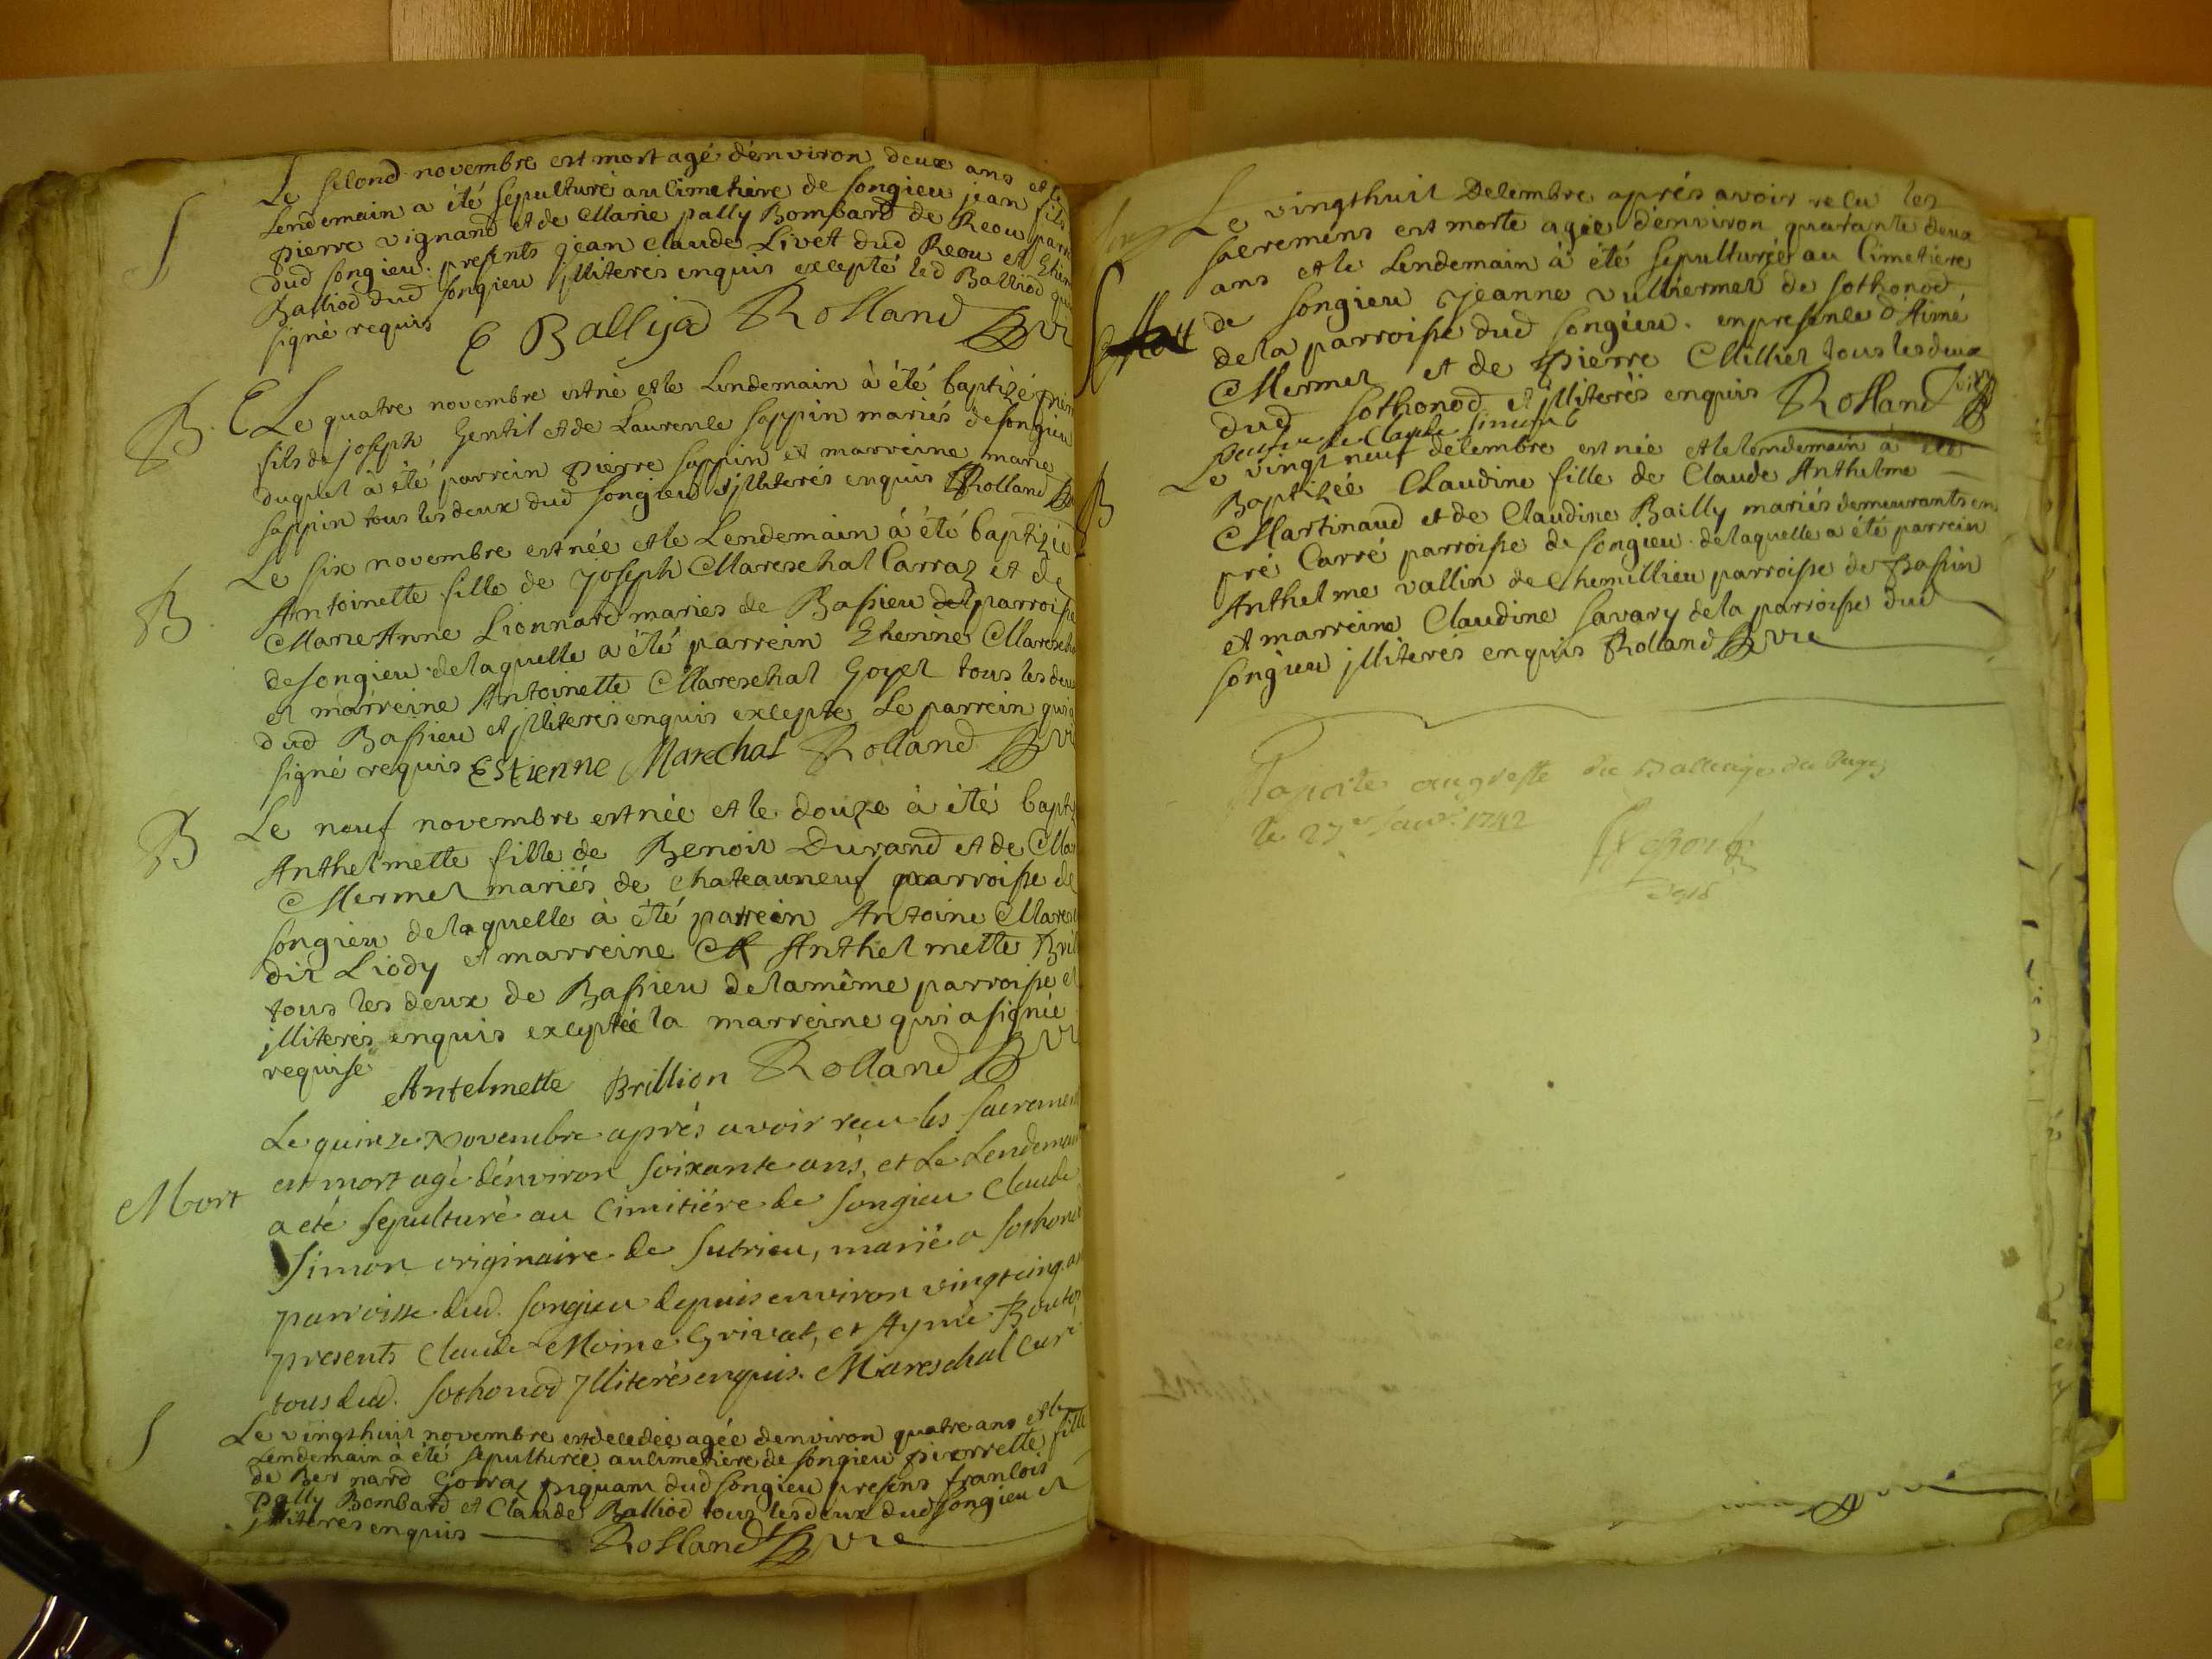 S
Le second novembre est mort agé d'environ deux ans et le
Lendemain a été sepulturé au cimetiere de songieu jean fils
pierre vignand et de Marie pally Bombard de Reou parro
dud songieu. presents jean claude Livet dud Reou et Etien
Balliod dud songieu jlliterés enquis excepté led Balliod qui
signé requis E Balliod Rolland vi
B.
Le quatre novembre est né et le Lendemain à été baptizé
fils de joseph Gentil et de Laurence sappin mariés de songieu
duquel à été parrein pierre sappin et marreine marie
sappin tous les deux dud songieu et jlliterés enquis Rolland
B
Le six novembre est née et le Lendemain à été baptizée
Antoinette fille de joseph Mareschal Carraz et de
Marie Anne Lionnard mariés de Bassieu parroisse
de songieu. de laquelle a été parrein Etienne Maresch
et marreine Antoinette Mareschal Goyet tous les deux
dud Bassieu et jlliterés enquis excepté Le parrein qui a
signé requis Estienne Marechal Rolland vi
B
Le neuf novembre est née et le douze à été bapti
Anthelmette fille de Benoit Durand et de Mar
Mermet mariés de chateauneuf parroisse de
songieu de laquelle à été parrein Antoine Mares
dit Liody et marreine Anthelmette Bril
tous les deux de Bassieu de la même parroisse et
jlliterés enquis exceptée la marreine qui a signée
requise
Antelmette Brillion Rolland vi
Mort
Le quinze Novembre aprés avoir recu les sacremen
est mort agé d'énviron soixante ans, et Le Lendemain
a eté sepulturé au Cimitiére de songieu Claude
Simon originaire de sutrieu, marié a sothonod
parroisse dud. songieu depuis environ vingt cinq an
presents Claude Moine Grivat, et Aymé Bouto
tous dud. sothonod jlliterés enquis. Mareschal Curé
S
Le vingthuit novembre est decedée agée denviron quatre ans et le
Lendemain à été sepulturée au cimetiere de songieu pierrette fille
de Bernard Gorraz piquam dud songieu presens francois
pally Bombard et Claude Balliod tous les deux dud songieu et
jlliterés enquis Rolland vic
Le vingthuit Decembre aprés avoir recu les
sacremens est morte agée d'environ quarante deux
ans et le Lendemain à été sepulturée au Cimetiére
de songieu jeanne vulliermet de sothonod
de la parroisse dud songieu. en presence d'Aimé
Mermet et de pierre Milliet tous les deux
dud sothonod et jlliterés enquis Rolland vic
de Claude
B
Le vingt neuf decembre est née et le lendemain à été
Baptizée Claudine fille de Claude Anthelme
Martinaud et de Claudine Bailly mariés demeurants en
pré Carré parroisse de songieu. de laquelle a été parrein
Anthelme vallin de Chemillieu parroisse de passin
et marreine Claudine savary de la parroisse dud
songieu jlliterés enquis Rolland vic
Raporté au greffe du Balliage du Bugey
le 27 janv. 1742